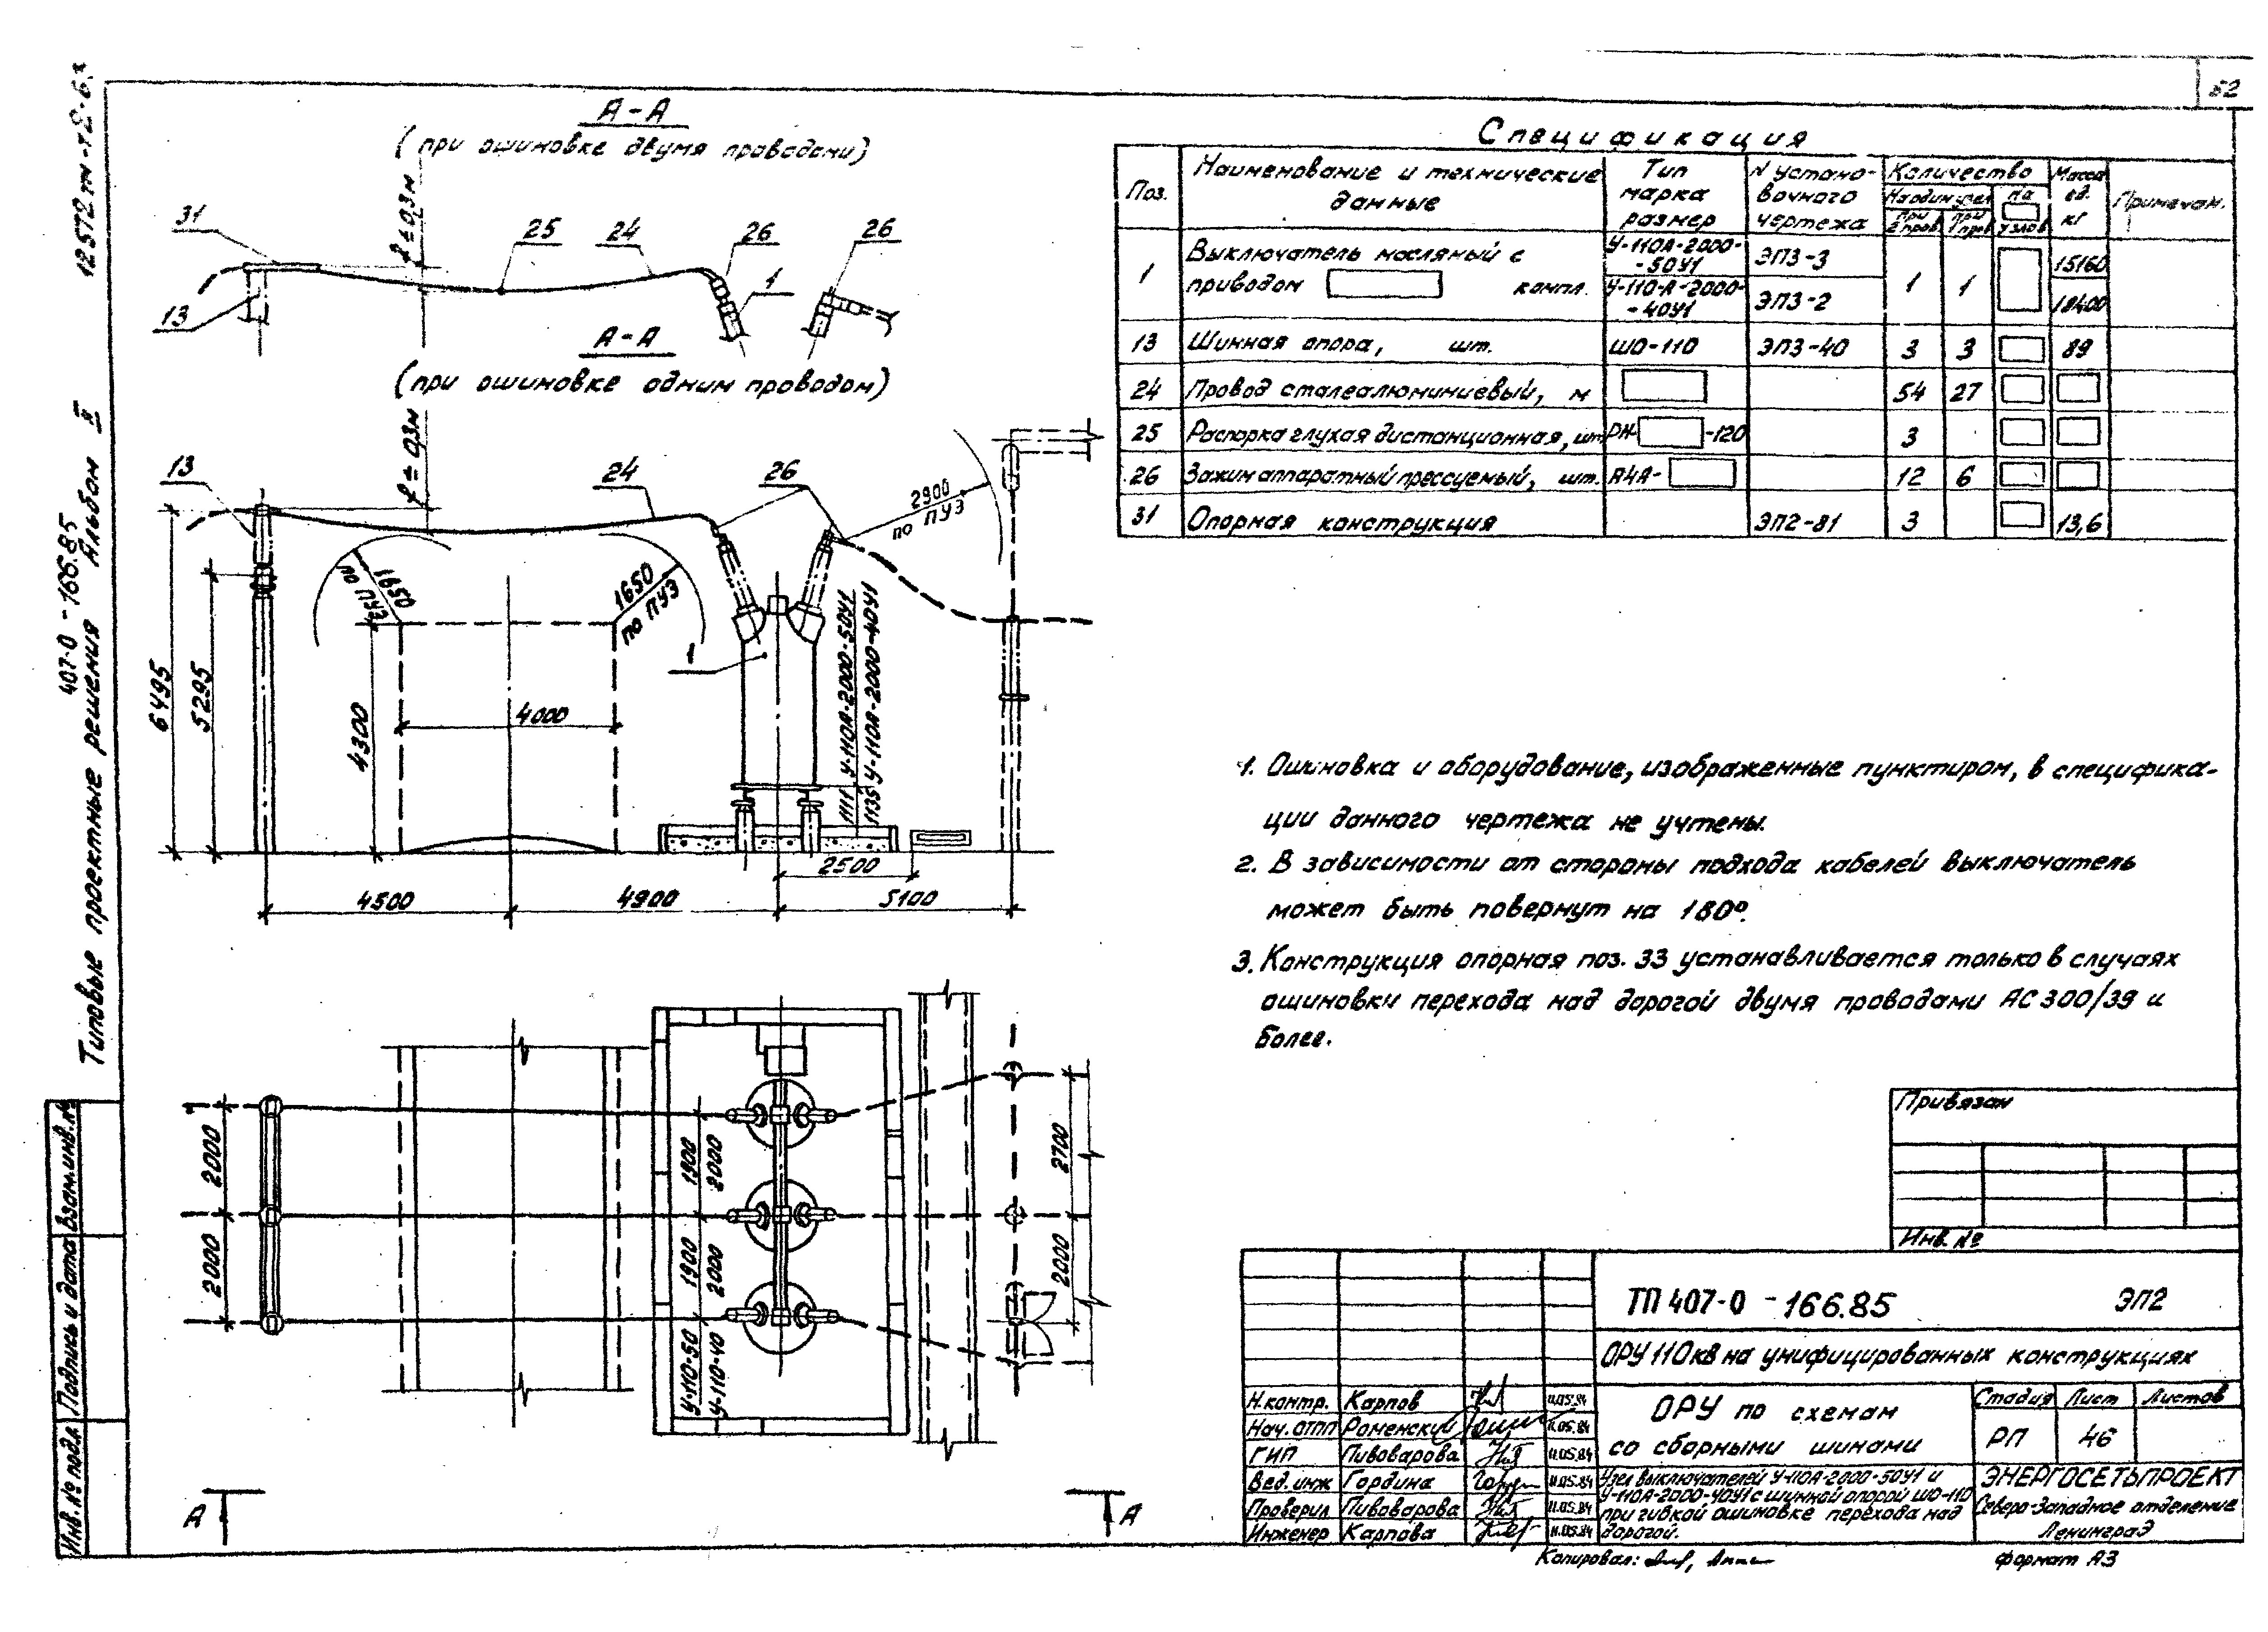 52
12572тм-т2-63
407-0-166.85
Типовые проектные решения Альбом II
А-А
(при ошиновке двумя проводами)
31
f=0,3м
25
24
26
26
13
1
А-А
(при ошиновке одним проводом)
f=0,3м
13
24
26
2900
по ПУЭ
1650
по ПУЭ
1650
по ПУЭ
1
6495
5295
4300
4000
1111 У-110А-2000-50У1
1135 У-110А-2000-40У1
2500
4500
4900
5100
2000
2000
1900
2000
1900
2000
У-110-50
У-110-40
2700
2000
А
А
Спецификация
Поз.
Наименование и технические
данные
Тип
марка
размер
N устано-
вочного
чертежа
Количество
На один узел
при 2 пров.
при 1 пров.
на
узлов
Масса
ед.
кг
Примечан.
1
Выключатель масляный с
приводом компл.
У-110А-2000-
-50У1
ЭП3-3
1
1
15160
У-110-А-2000-
-40У1
ЭП3-2
18400
13 Шинная опора, шт. ШО-110 ЭП3-40 3 3 89
24 Провод сталеалюминиевый, м 54 27
25 Распорка глухая дистанционная, шт. РН- -120 3
26 Зажим аппаратный прессуемый, шт. А4А- 12 6
31 Опорная конструкция ЭП2-81 3 13,6
1. Ошиновка и оборудование, изображенные пунктиром, в специфика-
ции данного чертежа не учтены.
2. В зависимости от стороны подхода кабелей выключатель
может быть повернут на 180°.
3. Конструкция опорная поз. 33 устанавливается только в случаях
ошиновки перехода над дорогой двумя проводами АС 300/39 и
более.
Привязан
Инв. №
ТП 407-0-166.85 ЭП2
ОРУ 110кв на унифицированных конструкциях
Н.контр. Карпов 11.05.84
Нач. ОТП Роменский 11.05.84
ГИП Пивоварова 11.05.84
Вед. инж Гордина 11.05.84
Проверил Пивоварова 11.05.84
Инженер Карпова 11.05.84
ОРУ по схемам
со сборными шинами
Стадия Лист Листов
РП 46
Узел выключателей У-110А-2000-50У1 и
У-110А-2000-40У1 с шинной опорой ШО-110
при гибкой ошиновке перехода над
дорогой.
ЭНЕРГОСЕТЬПРОЕКТ
Северо-Западное отделение
Ленинград
Копировал:
формат А3
Инв. № подл. Подпись и дата Взам.инв.№